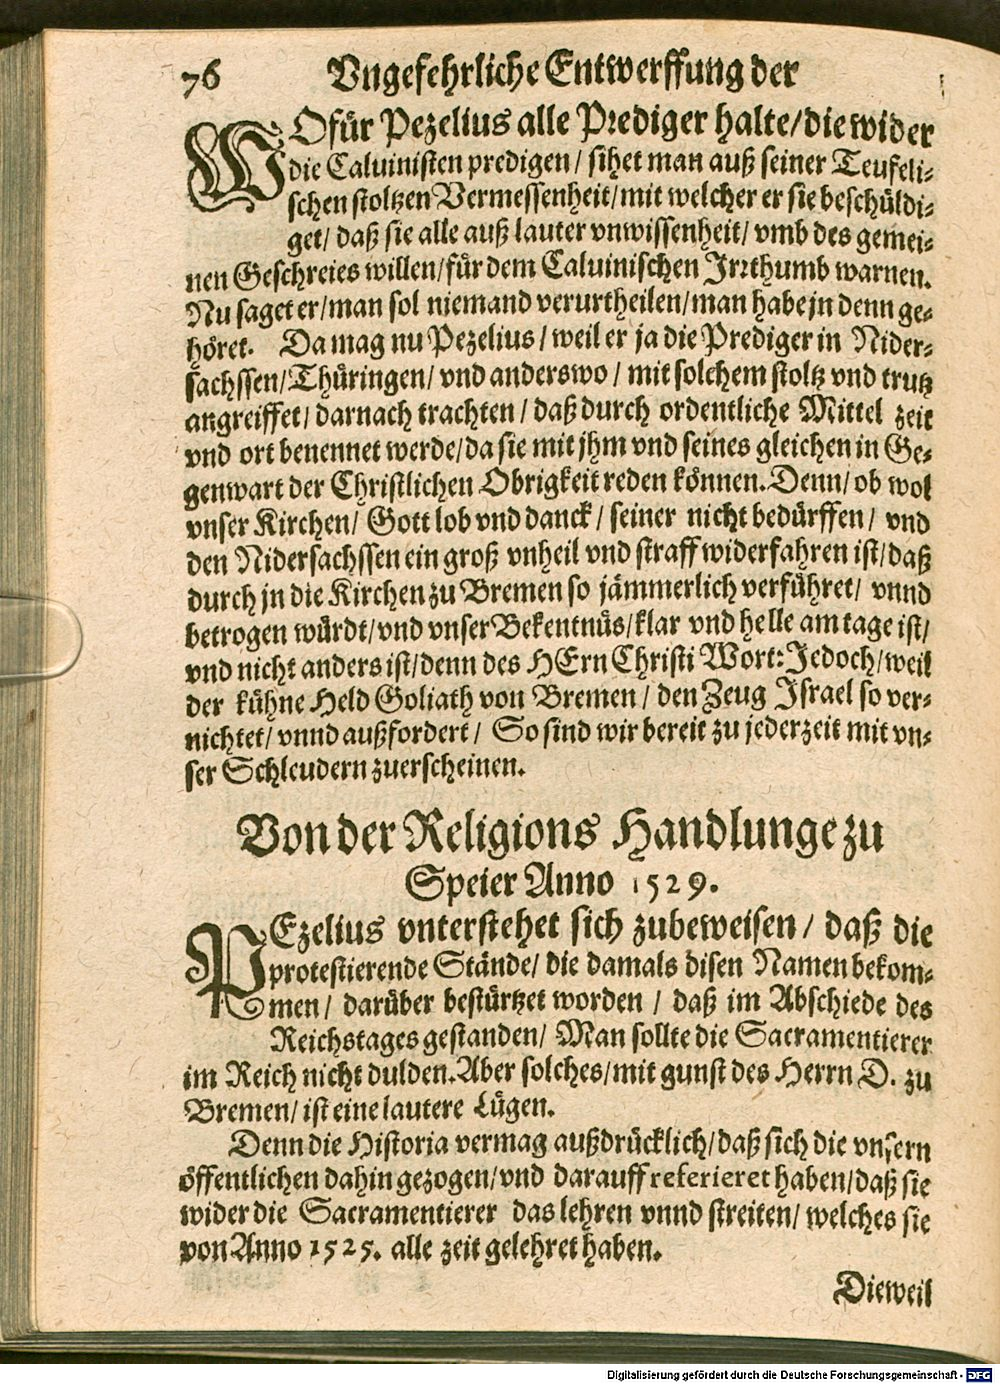 76 Vngefehrliche Entwerffung der
WOfür Pezelius alle Prediger halte/die wider
die Caluinisten predigen/ sihet man auß seiner Teufeli-
schen stoltzen Vermessenheit/mit welcher er sie beschüldi-
get/ daß sie alle auß lauter vnwissenheit/ vmb des gemei-
nen Geschreies willen/für dem Caluinischen Irrthumb warnen.
Nu saget er/man sol niemand verurtheilen/man habe jn denn ge-
höret. Da mag nu Pezelius/ weil er ja die Prediger in Nider-
sachssen/Thüringen/ vnd anderswo/ mit solchem stoltz vnd trutz
angreiffet/ darnach trachten/ daß durch ordentliche Mittel zeit
vnd ort benennet werde/da sie mit jhm vnd seines gleichen in Ge-
genwart der Christlichen Obrigkeit reden können. Denn/ ob wol
vnser Kirchen/ Gott lob vnd danck/ seiner nicht bedürffen/ vnd
den Nidersachssen ein groß vnheil vnd straff widerfahren ist/daß
durch jn die Kirchen zu Bremen so jämmerlich verführet/ vnnd
betrogen würdt/vnd vnser Bekentnüs/klar vnd helle am tage ist/
vnd nicht anders ist/denn des HErn Christi Wort: Jedoch/weil
der kühne Held Goliath von Bremen/ den Zeug Israel so ver-
nichtet/ vnnd außfordert/ So sind wir bereit zu jederzeit mit vn-
ser Schleudern zuerscheinen.
Von der Religions Handlunge zu
Speier Anno 1529.
PEzelius vnterstehet sich zubeweisen/ daß die
protestierende Stände/ die damals disen Namen bekom-
men/ darüber bestürtzet worden/ daß im Abschiede des
Reichstages gestanden/ Man sollte die Sacramentierer
im Reich nicht dulden. Aber solches/mit gunst des Herrn D. zu
Bremen/ ist eine lautere Lügen.
Denn die Historia vermag außdrücklich/daß sich die vnsern
öffentlichen dahin gezogen/vnd darauff referieret haben/daß sie
wider die Sacramentierer das lehren vnnd streiten/ welches sie
von Anno 1525. alle zeit gelehret haben.
Dieweil
Digitalisierung gefördert durch die Deutsche Forschungsgemeinschaft - DFG